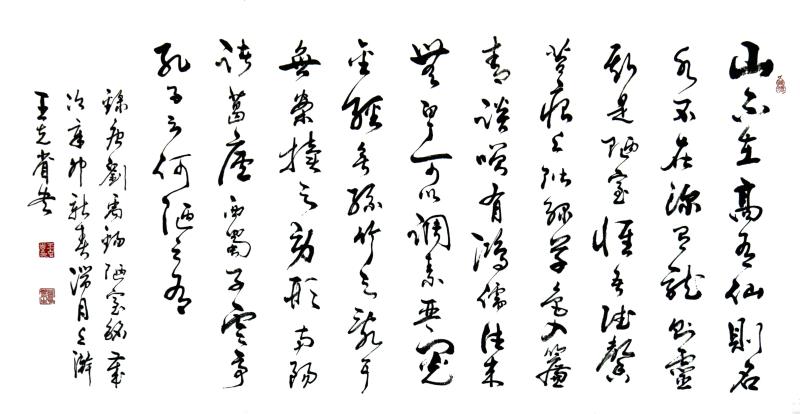 山不在高有仙則名
水不在深有龍則靈
斯是陋室惟吾德馨
苔痕上階綠草色入簾
青談笑有鴻儒往來
無白丁可以調素琴閱
金經無絲竹之亂耳
無案牘之勞形南陽
諸葛廬西蜀子雲亭
孔子云何陋之有
錄唐劉禹錫陋室銘歲
次辛卯新春月
王書